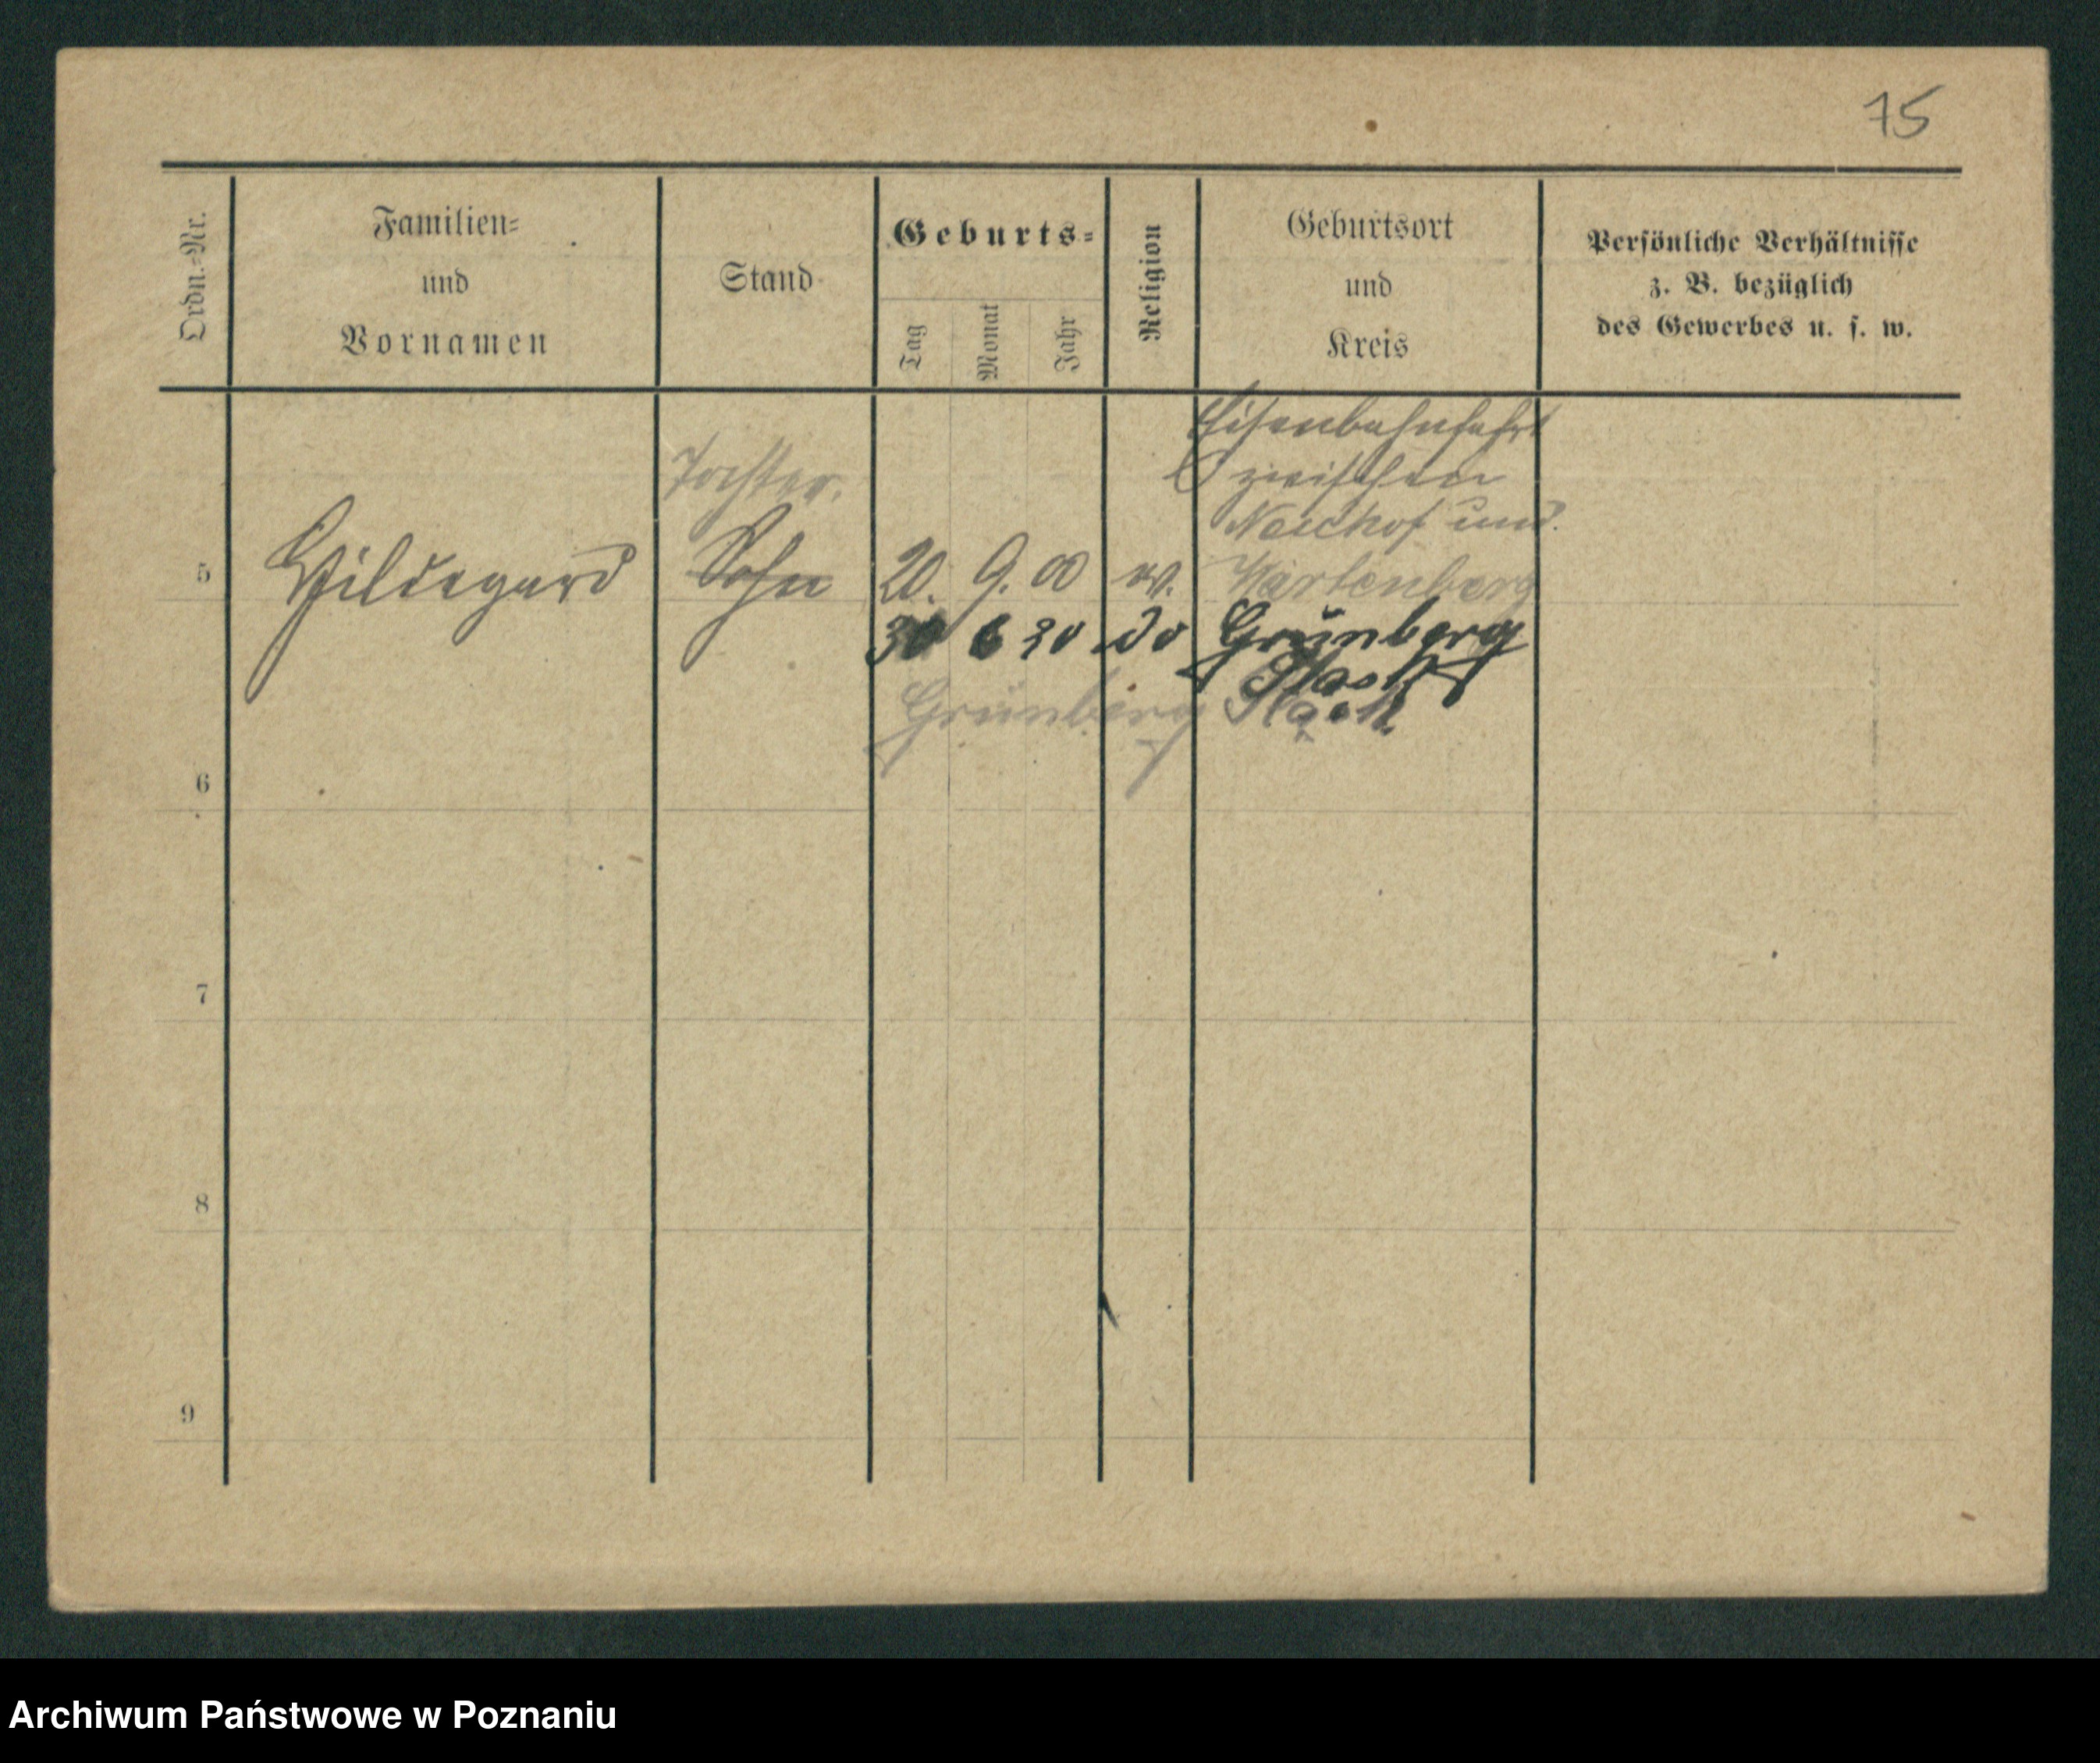 75
Ordn.=Nr.
Familien=
und
Vornamen
Stand
Geburts=
Tag
Monat
Jahr
Religion
Geburtsort
und
Kreis
Persönliche Verhältnisse
z. B. bezüglich
des Gewerbes u. s. w.
Eisenbahnfahrt
Tochter. zwischen
Neuhof und
5 Hildegard Sohn 20. 9. 00 ev. Wartenberg
30 6 20 do Grünberg
Grünberg
6
7
8
9
Archiwum Państwowe w Poznaniu